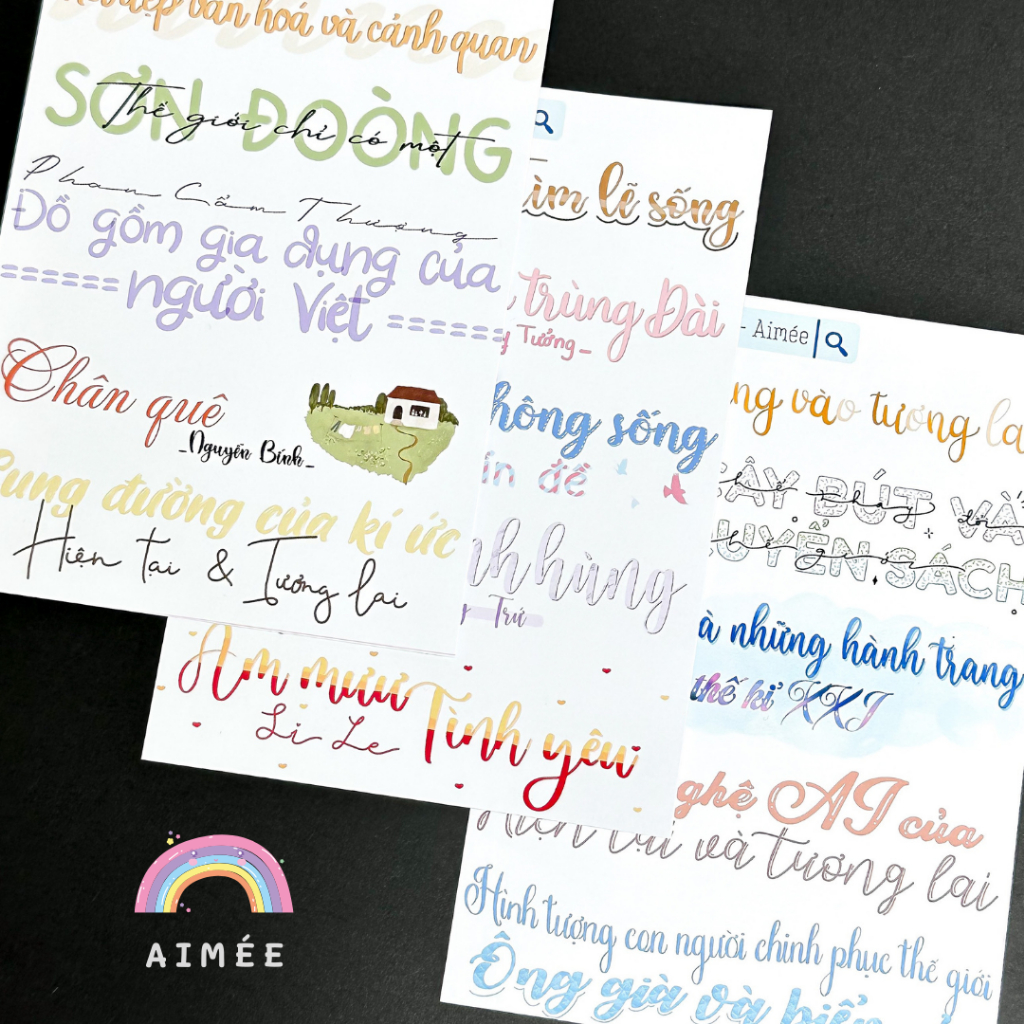 đẹp văn hoá và cảnh quan
SƠN ĐOÒNG
Thế giới chỉ có một
Phan Cẩm Thượng
Đồ gồm gia dụng của
======người Việt======
Chân quê
_Nguyễn Bính_
Cung đường của kí ức
Hiện tại & Tương lai
lẽ sống
trùng Đài
Tưởng_
sống
đề
hùng
Trứ
Âm mưu Tình yêu
Li Le
- Aimée
vào tương
CÂY BÚT VÀ
QUYỂN SÁCH
thay đổi
thế giới
những hành trang
thế kỉ XXI
AI của
Hiện tại và tương lai
Hình tượng con người chinh phục thế giới
Ông già và biển
AIMÉE